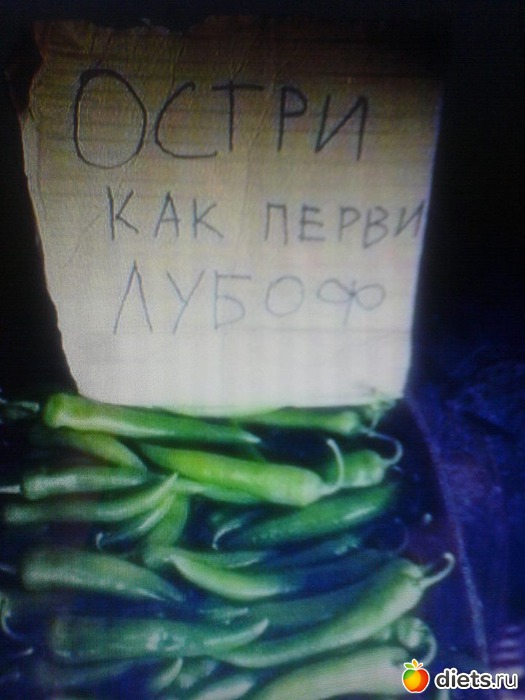 ОСТРИ
КАК ПЕРВИ
ЛУБОФ
diets.ru